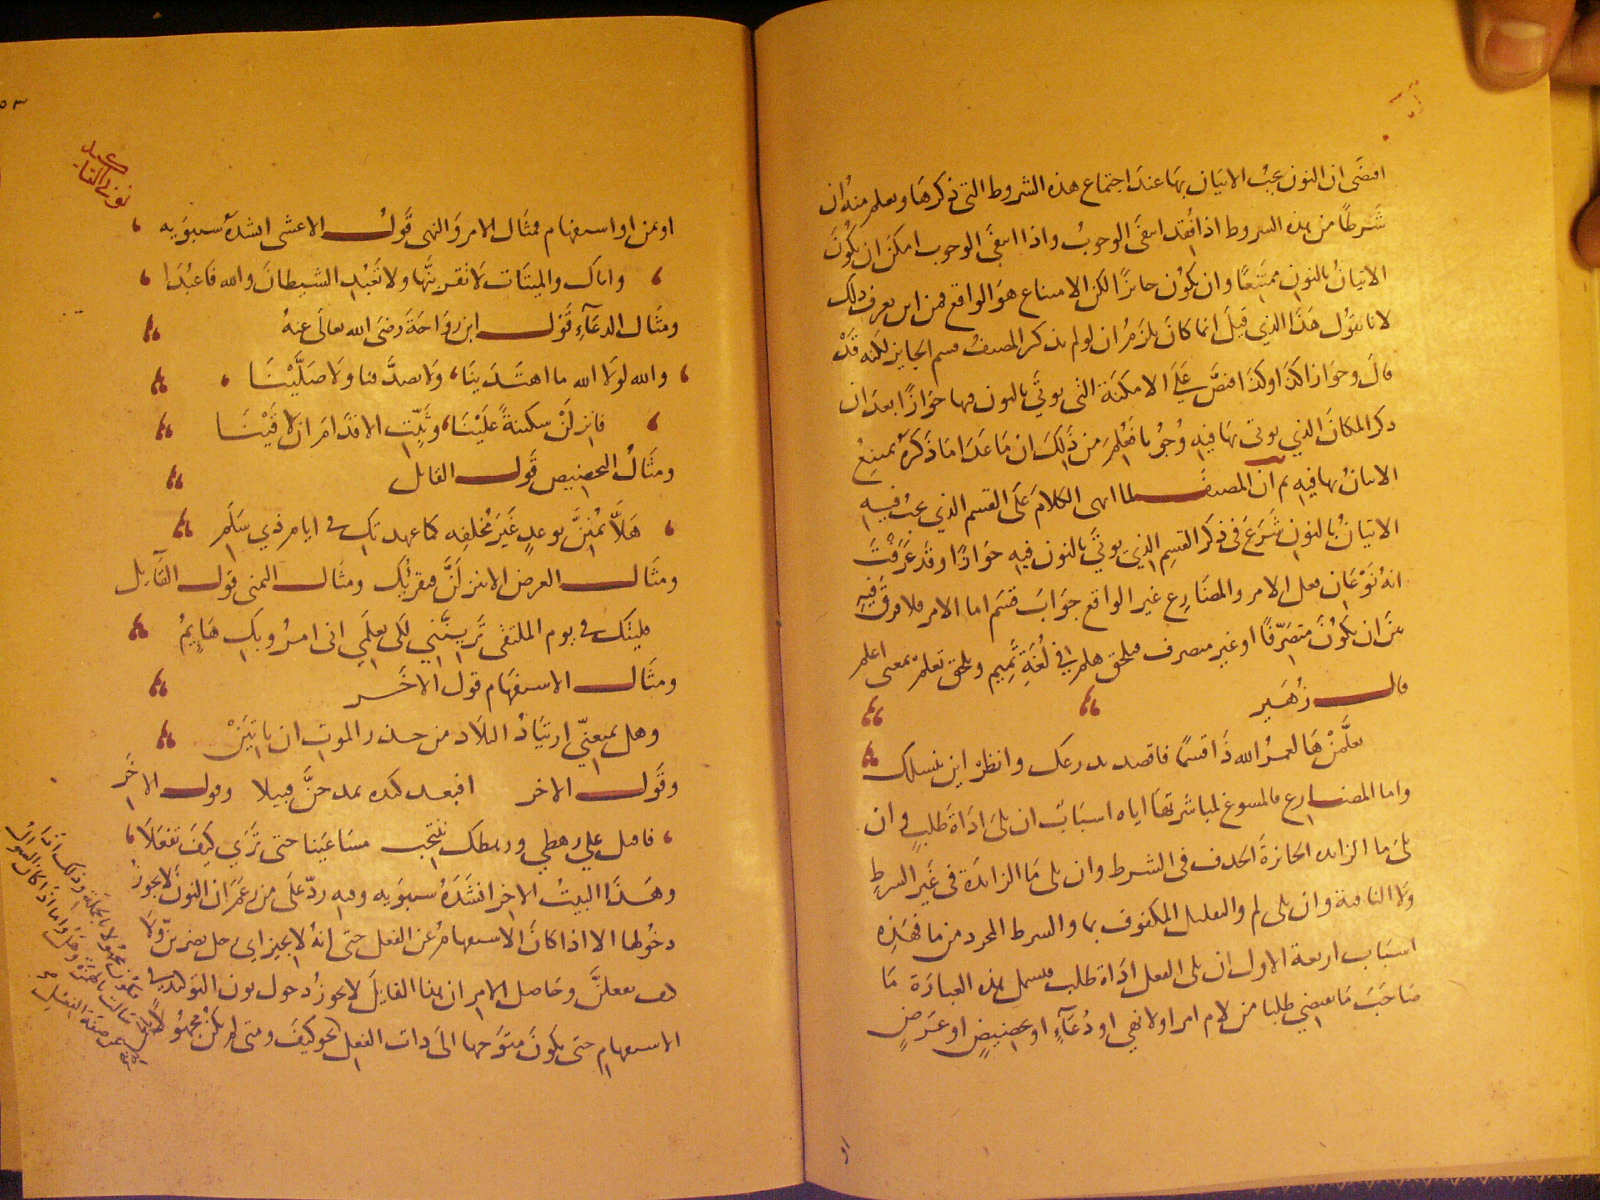 اقتضى ان النون يجب الاتيان بها عند اجتماع هذه الشروط التى ذكرها ويعلم منه ان
شرطا من هذه الشروط اذا فقد انتفى الوجوب واذا انتفى الوجوب امكن ان يكون
الاتيان بالنون ممتنعا وان يكون جائزا لكن الامتناع هو الواقع فمن اين يعرف ذلك
لانا نقول هذا الذي قيل انما كان يلزم ان لو لم يذكر المصنف قسم الجايز لكنه قد
قال وجوازا كذا وكذا فنص على الامكنة التى يوتى بالنون فيها جوازا بعد ان
ذكر المكان الذي يوتى بها فيه وجوبا فعلم من ذلك ان ما عدا ما ذكره يمتنع
الاتيان بها فيه ثم ان المصنف لما انهى الكلام على القسم الذي يجب فيه
الاتيان بالنون شرع فى ذكر القسم الذي يوتى بالنون فيه جوازا وقد عرفت
انه نوعان فعل الامر والمضارع غير الواقع جواب قسم اما الامر فلا فرق فيه
بين ان يكون متصرفا او غير متصرف فيلحق هلم في لغة تميم ويلحق تعلم بمعنى اعلم
قال زهير
تعلمن ها لعمر الله ذا قسما فاقصد بدرعك وانظر اين تنسلك
واما المضارع فالمسوغ لمباشرتها اياه اسباب ان يلى اداة طلب وان
يلى ما الزايده الجائزة الحذف فى الشرط وان يلى ما الزائدة فى غير الشرط
ولا النافية وان يلى لم والتقليل المكفوف بما والشرط المجرد من ما فهذه
اسباب اربعة الاول ان يلى الفعل اداة طلب فيشمل هذه العبارة ما
صاحب ما يقتضي طلبا من لام امر او لا نهي او دعاء او تحضيض او عرض
او تمن او استفهام فمثال الامر والنهى قول الاعشى انشده سيبويه
واياك والميتات لا تقربنها ولا تعبد الشيطان والله فاعبدا
ومثال الدعاء قول ابن رواحة رضى الله تعالى عنه
والله لولا الله ما اهتدينا ولا تصدقنا ولا صلينا
فانزلن سكينة علينا وثبت الاقدام ان لاقينا
ومثال التحضيض قول القايل
هلا تمنن بوعد غير مخلفه كما عهدتك في ايام ذي سلم
ومثال العرض الا تنزلن فنقريك ومثال التمنى قول القايل
فليتك في يوم الملتقى ترينني لكى تعلمي انى امرو بك هايم
ومثال الاستفهام قول الاخر
وهل يمنعني ارتياد البلاد من حذر الموت ان ياتين
وقول الاخر افبعد كنده تمدحن قبيلا وقول الاخر
فاقبل على رهطي ورهطك نبتحث مساعينا حتى ترى كيف نفعلا
وهذا البيت الاخر انشده سيبويه وفيه رد على من زعم ان النون لا يجوز
دخولها الا اذا كان الاستفهام عن الفعل حتى انه لا يجيز اي رجل يضربن ولا
كيف تفعلن وحاصل الامر ان هذا القايل لا يجوز دخول نون التوكيد في
الاستفهام حتى يكون متوجها الى ذات الفعل نحو كيف ومتى لم يكن مجهولا